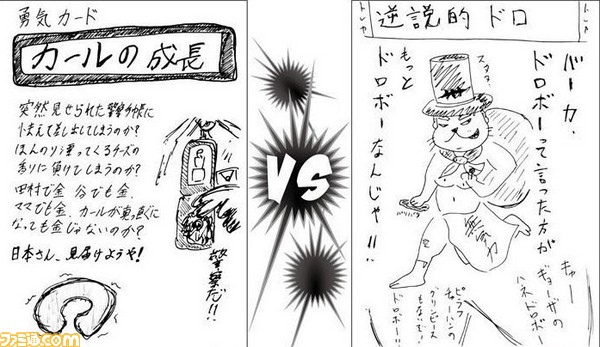 勇気カード
カールの成長
突然見せられた警察手帳に
怯えて差し出してしまうのか?
ほんのり漂ってくるチーズの
香りに負けてしまうのか?
田村で金 谷でも金
ママでも金、カールが真っ直ぐに
なっても金じゃないのか?
日本さん、見届けようや!
警察だ!!
VS
逆説的 ドロ
バーカ、
ドロボーって言った方が
もっと
ドロボーなんじゃ!!
キャー
ギョーザの
ハネドロボー
ピラフ
チャーハンの
グリンピース
ドロボー!!
ファミ通.com